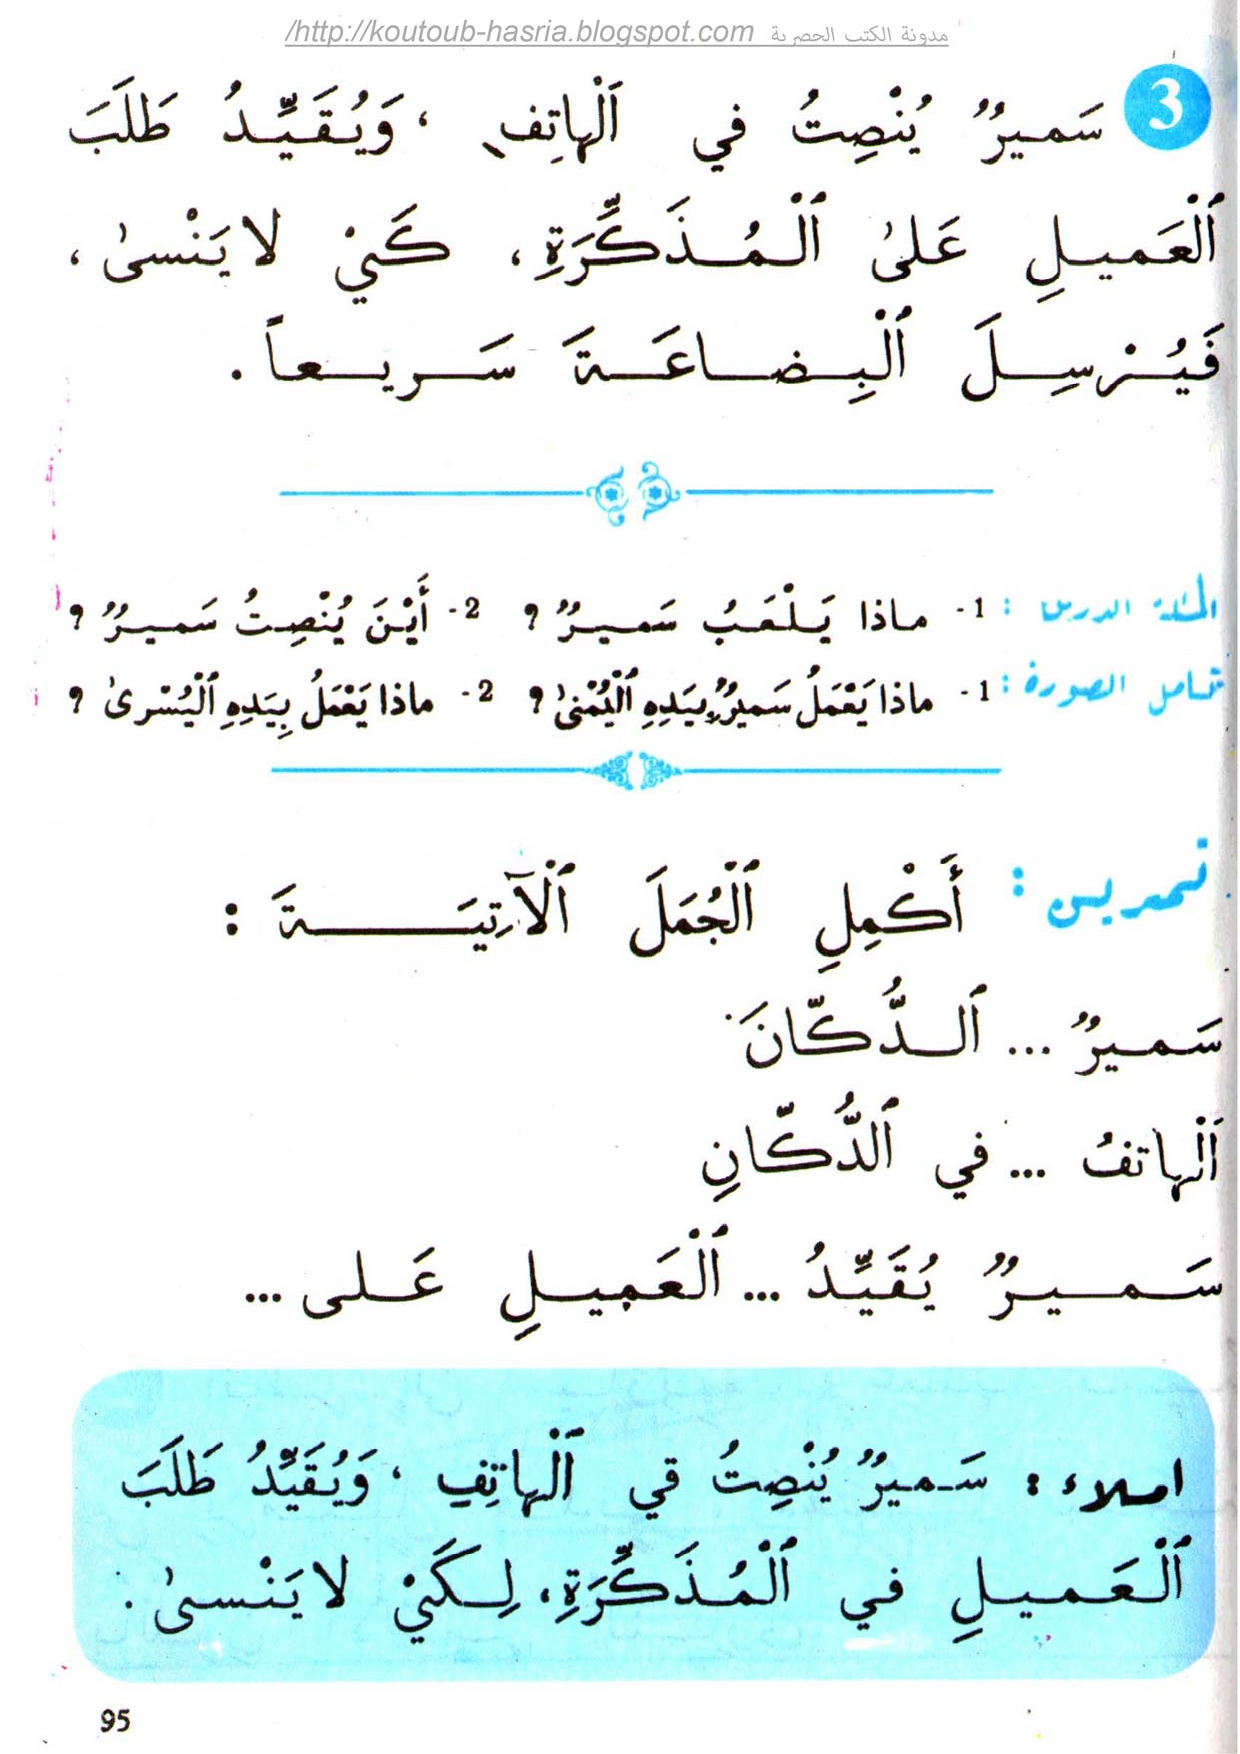 مدونة الكتب الحصرية http://koutoub-hasria.blogspot.com/
3 سَميرٌ يُنْصِتُ في اَلْهاتِفِ ، وَيُقَيِّدُ طَلَبَ
اَلْعَميلِ عَلىٰ اَلْمُذَكِّرَةِ، كَيْ لا يَنْسىٰ ،
فَيُرْسِلَ اَلْبِضاعَةَ سَريعاً .
أسئلة الدرس : 1- ماذا يَلْعَبُ سَميرٌ ؟ 2- أَيْنَ يُنْصِتُ سَميرٌ ؟
تأمل الصورة : 1- ماذا يَعْمَلُ سَميرٌ بِيَدِهِ اَلْيُمْنىٰ ؟ 2- ماذا يَعْمَلُ بِيَدِهِ اَلْيُسْرىٰ ؟
تمرين : أَكْمِلِ اَلْجُمَلَ اَلْآتِيَةَ :
سَميرٌ ... اَلدُّكّانَ.
اَلْهاتفُ ... في اَلدُّكّانِ
سَميرٌ يُقَيِّدُ ... اَلْعَميلِ عَلى ...
املاء : سَميرٌ يُنْصِتُ في اَلْهاتِفِ ، وَيُقَيِّدُ طَلَبَ
اَلْعَميلِ في اَلْمُذَكِّرَةِ، لِكَيْ لا يَنْسىٰ .
95